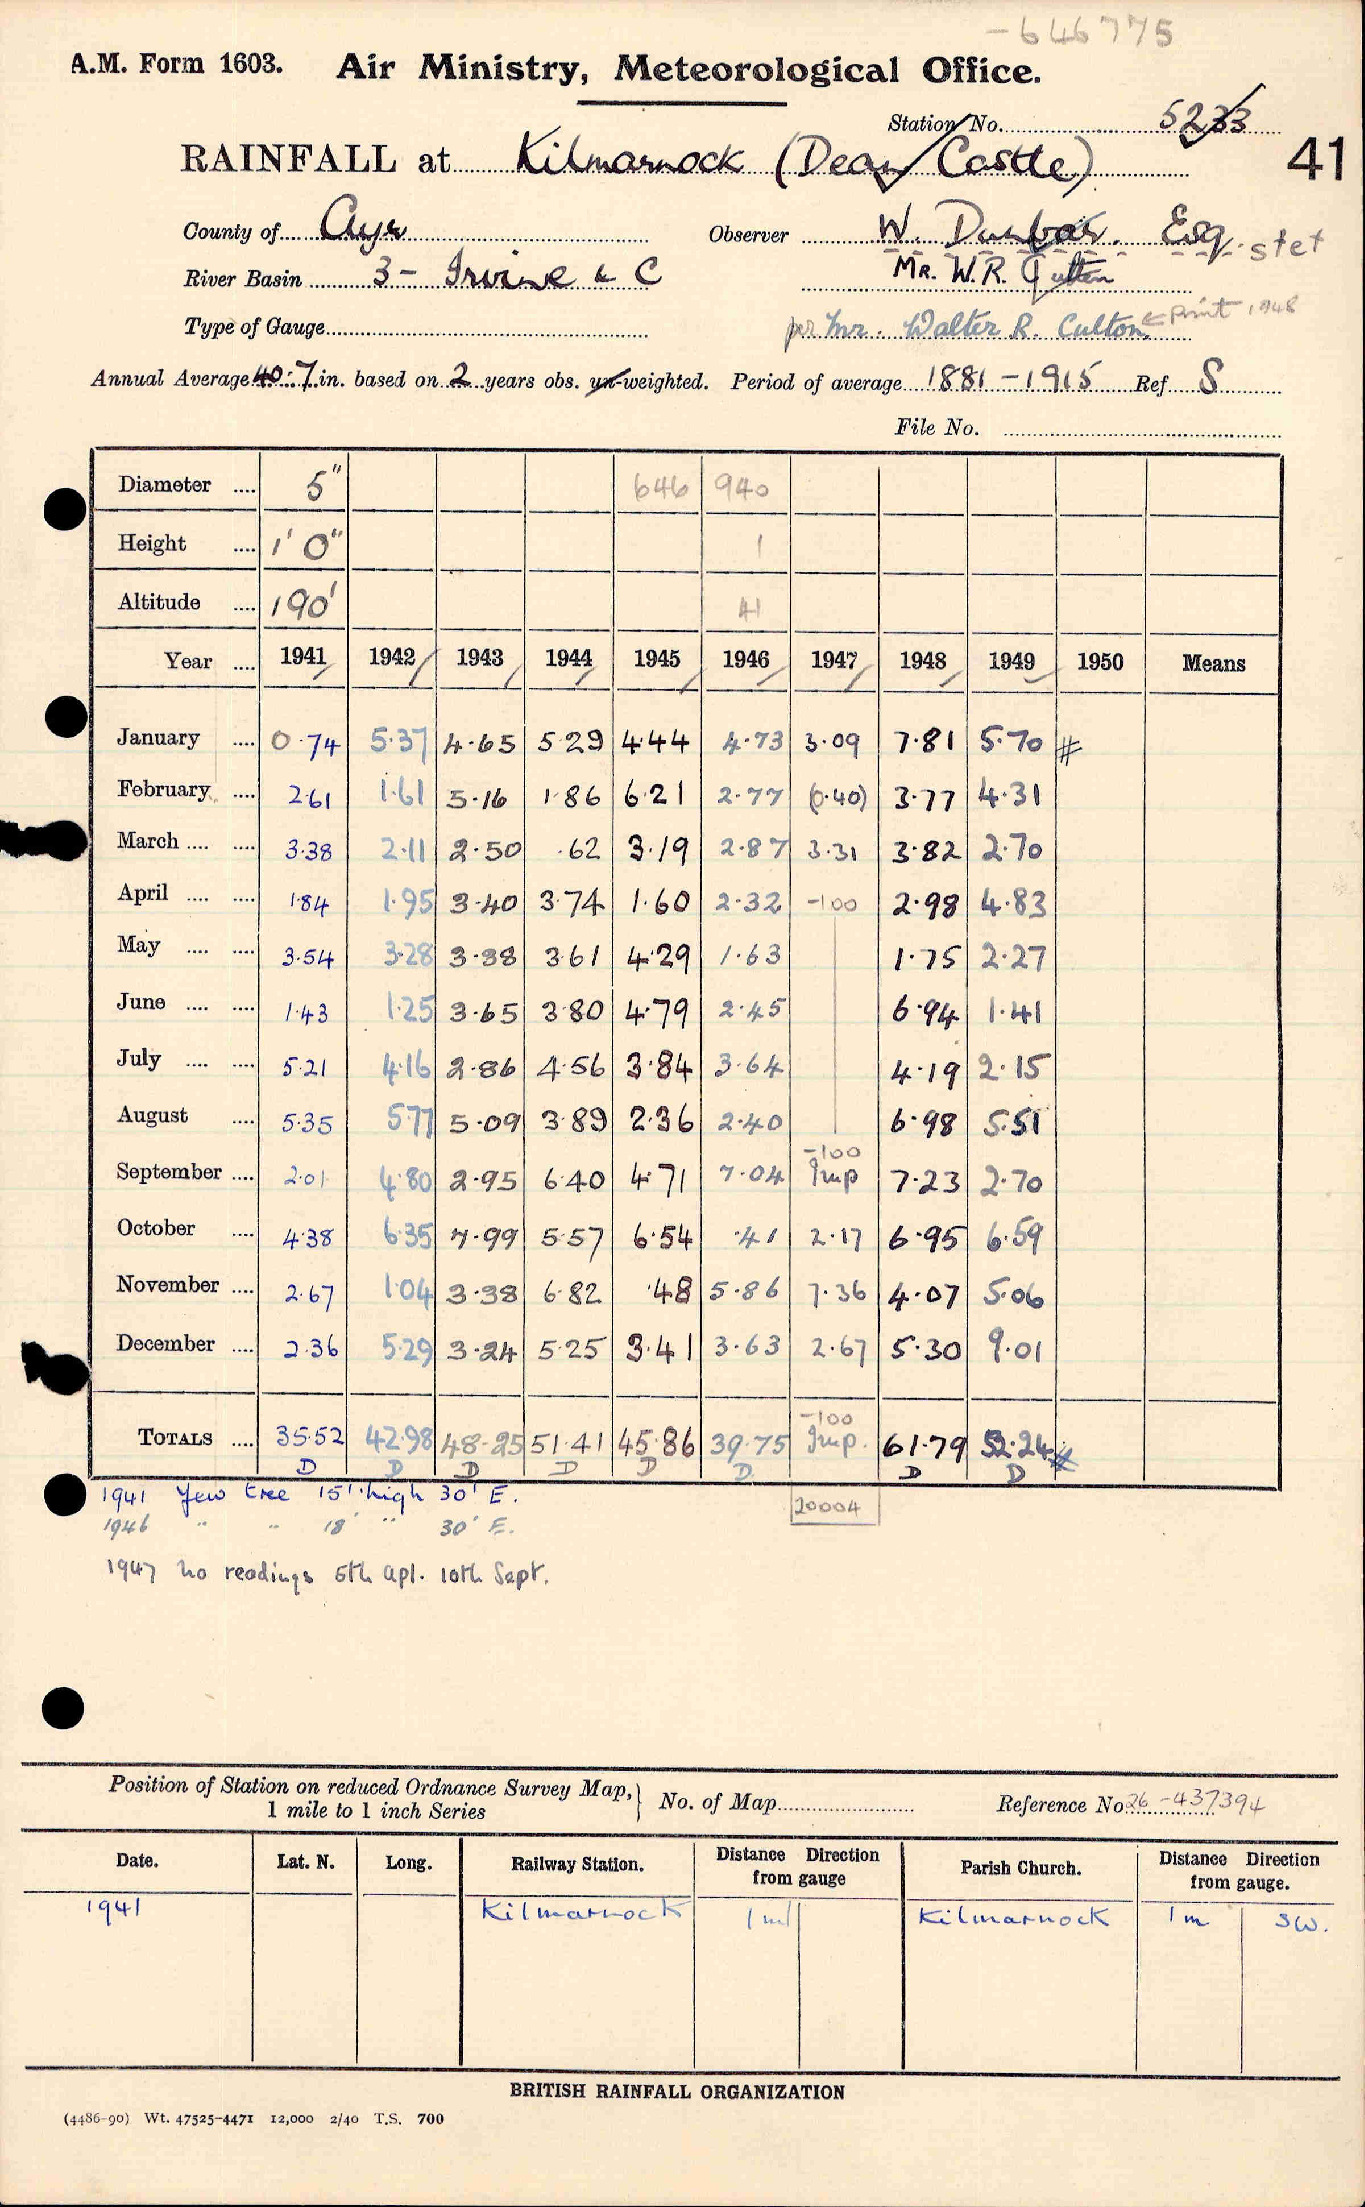 -646775
A.M. Form 1603. Air Ministry, Meteorological Office.
Station No. 5233
RAINFALL at Kilmarnock (Dean Castle) 41
County of Ayr Observer W. Dunbar. Esq. stet
River Basin 3 - Irvine & C MR. W.R. Culton
Type of Gauge per Mr. Walter R. Culton ← Print 1948
Annual Average 40.7 in. based on 2 years obs. un-weighted. Period of average 1881-1915 Ref S
File No.
Diameter .... 5" 646 940
Height .... 1' 0" 1
Altitude .... 190' 41
Year .... 1941 1942 1943 1944 1945 1946 1947 1948 1949 1950 Means
January .... 0.74 5.37 4.65 5.29 4.44 4.73 3.09 7.81 5.70 #
February .... 2.61 1.61 5.16 1.86 6.21 2.77 (0.40) 3.77 4.31
March .... .... 3.38 2.11 2.50 .62 3.19 2.87 3.31 3.82 2.70
April .... .... 1.84 1.95 3.40 3.74 1.60 2.32 -100 2.98 4.83
May .... .... 3.54 3.28 3.38 3.61 4.29 1.63 1.75 2.27
June .... .... 1.43 1.25 3.65 3.80 4.79 2.45 6.94 1.41
July .... .... 5.21 4.16 2.86 4.56 3.84 3.64 4.19 2.15
August .... 5.35 5.77 5.09 3.89 2.36 2.40 6.98 5.51
-100
September .... 2.01 4.80 2.95 6.40 4.71 7.04 Imp 7.23 2.70
October .... 4.38 6.35 7.99 5.57 6.54 .41 2.17 6.95 6.59
November .... 2.67 1.04 3.38 6.82 .48 5.86 7.36 4.07 5.06
December .... 2.36 5.29 3.24 5.25 3.41 3.63 2.67 5.30 9.01
-100
TOTALS .... 35.52 42.98 48.25 51.41 45.86 39.75 Imp. 61.79 52.24 #
D D D D D D D D
1941 Yew tree 15' high 30' E. 20004
1946 " " 18' " 30' E.
1947 no readings 5th Apl. 10th Sept.
Position of Station on reduced Ordnance Survey Map,
1 mile to 1 inch Series } No. of Map Reference No 26-437394
Date. Lat. N. Long. Railway Station. Distance Direction from gauge Parish Church. Distance Direction from gauge.
1941 Kilmarnock 1m Kilmarnock 1m SW.
BRITISH RAINFALL ORGANIZATION
(4486-90) Wt. 47525-4471 12,000 2/40 T.S. 700